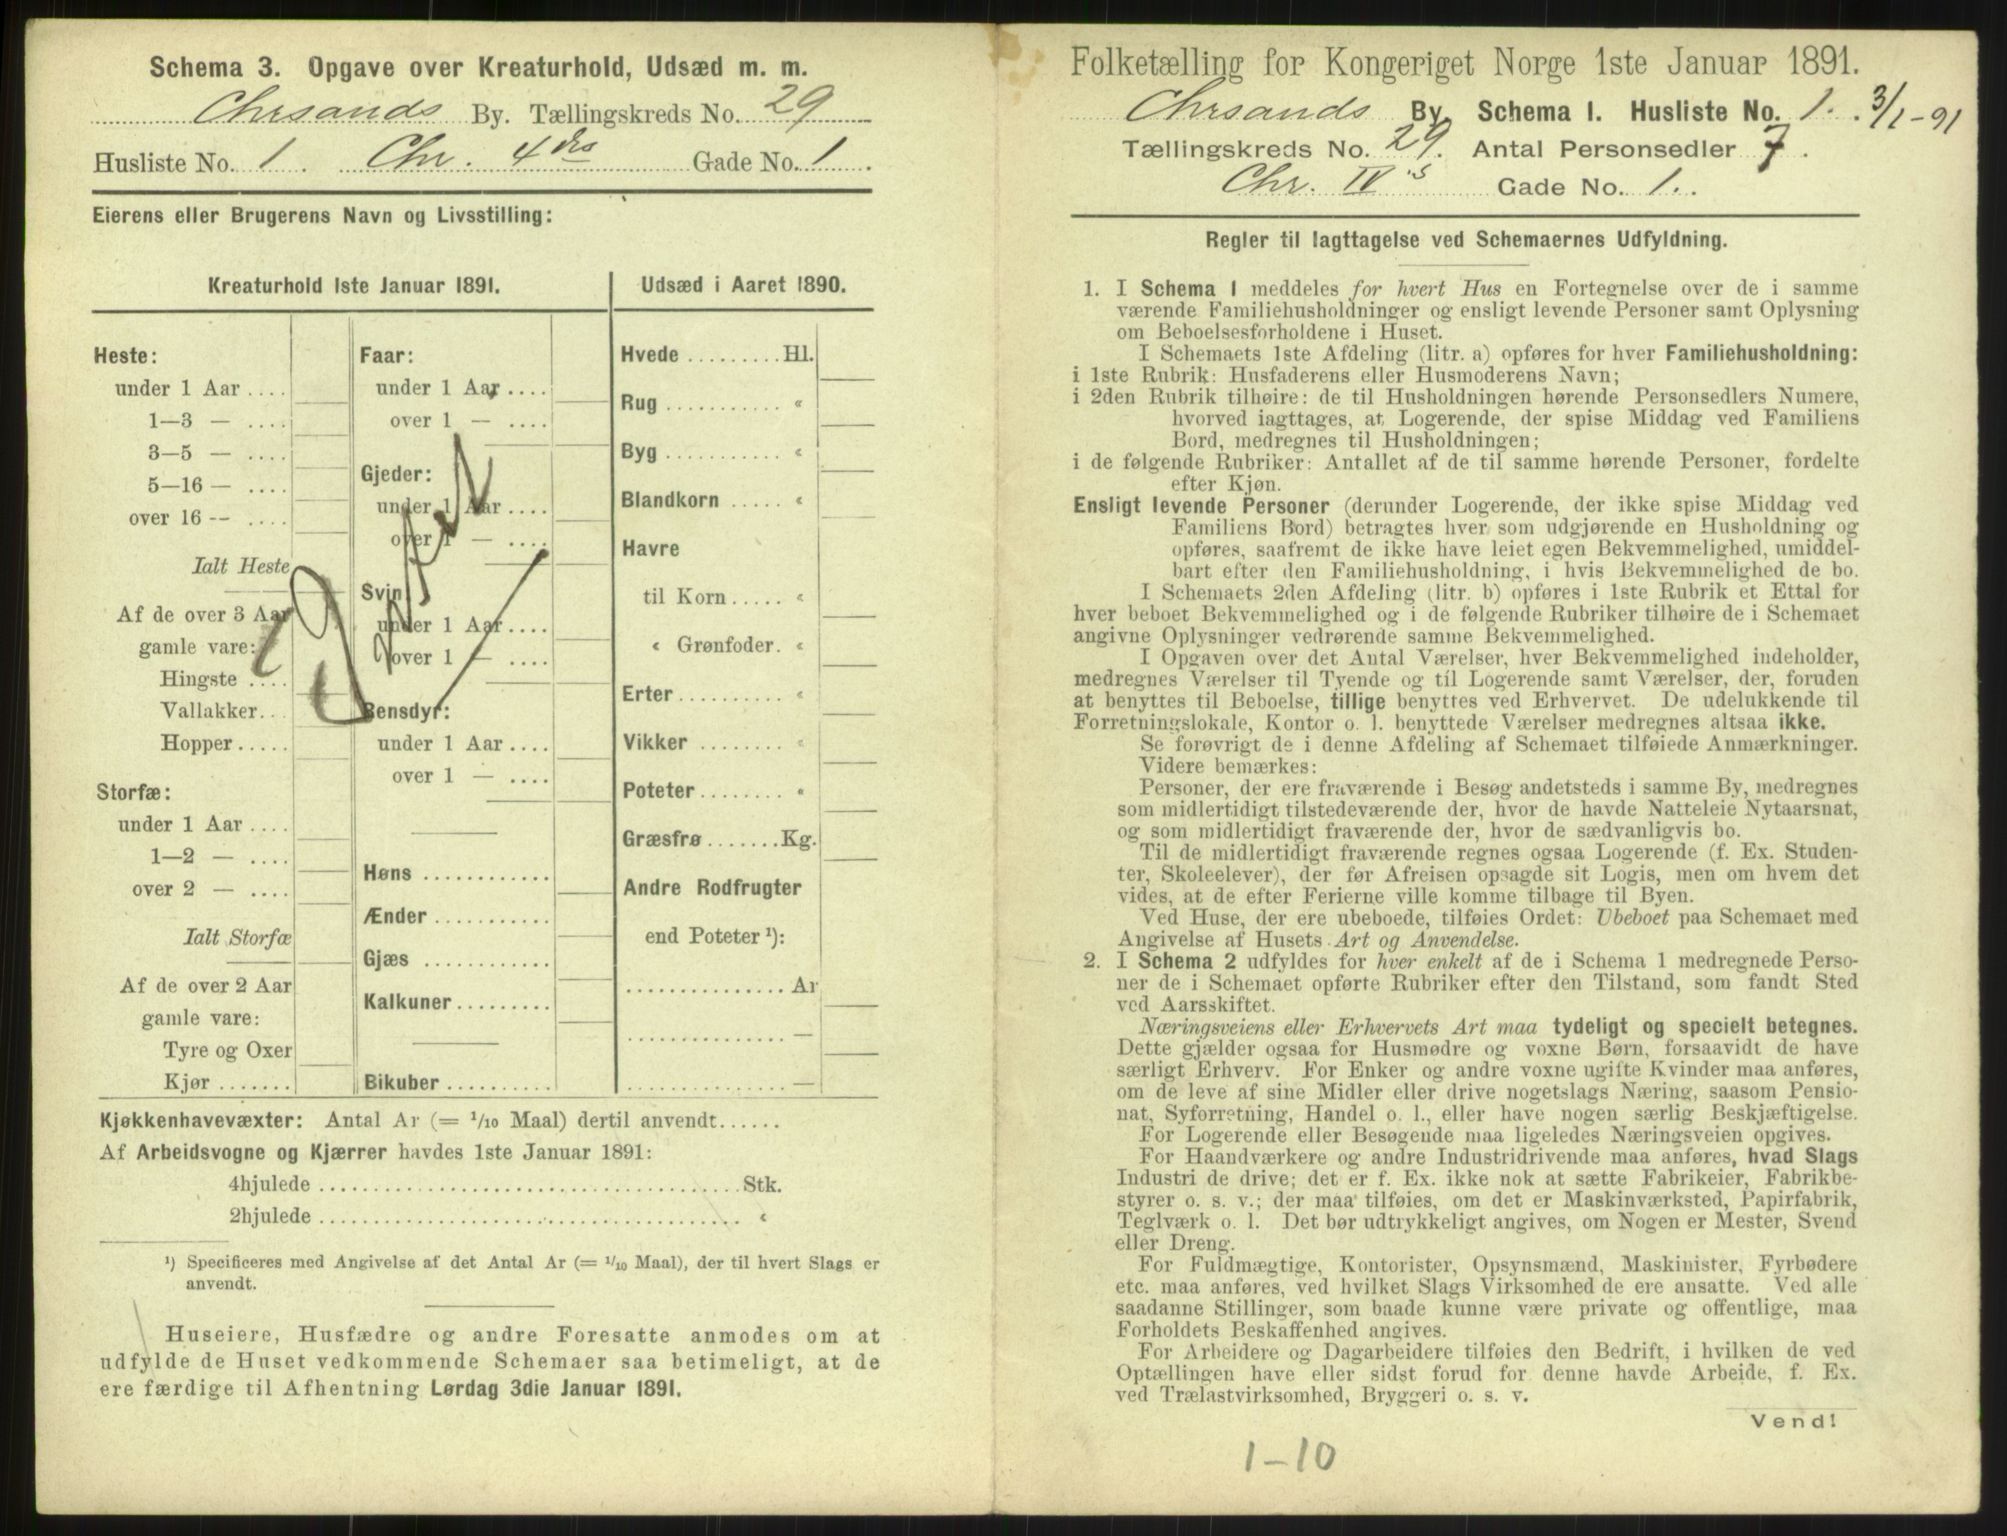 Schema 3. Opgave over Kreaturhold, Udsæd m. m.
Chrsands By. Tællingskreds No. 29
Husliste No. 1. Chr. 4des Gade No. 1.
Eierens eller Brugerens Navn og Livsstilling:
Kreaturhold 1ste Januar 1891.
Heste:
under 1 Aar ....
1—3 — ....
3—5 — ....
5—16 — ....
over 16 -- ....
Ialt Heste
Af de over 3 Aar
gamle vare:
Hingste ....
Vallakker...
Hopper.....
Storfæ:
under 1 Aar ....
1—2 — ....
over 2 — ....
Ialt Storfæ
Af de over 2 Aar
gamle vare:
Tyre og Oxer
Kjør .......
Faar:
under 1 Aar ....
over 1 — ....
Gjeder:
under 1 Aar ....
over 1 — ....
Svin
under 1 Aar....
over 1 — ....
Rensdyr:
under 1 Aar ....
over 1 — ....
Høns ............
Ænder ...........
Gjæs ............
Kalkuner.........
Bikuber ..........
Udsæd i Aaret 1890.
Hvede .........Hl.
Rug ........... «
Byg ........... «
Blandkorn ..... «
Havre
til Korn..... «
« Grønfoder. «
Erter .......... «
Vikker ........ «
Poteter........ «
Græsfrø .......Kg.
Andre Rodfrugter
end Poteter ¹):
............... Ar
............... —
............... —
Kjøkkenhavevæxter: Antal Ar (= 1/10 Maal) dertil anvendt......
Af Arbeidsvogne og Kjærrer havdes 1ste Januar 1891:
4hjulede ........................................ Stk.
2hjulede ........................................ «
¹) Specificeres med Angivelse af det Antal Ar (= 1/10 Maal), der til hvert Slags er
anvendt.
Huseiere, Husfædre og andre Foresatte anmodes om at
udfylde de Huset vedkommende Schemaer saa betimeligt, at de
ere færdige til Afhentning Lørdag 3die Januar 1891.
Folketælling for Kongeriget Norge 1ste Januar 1891.
Chrsands By Schema I. Husliste No. 1. 3/1-91
Tællingskreds No. 29. Antal Personsedler 7.
Chr. IV's Gade No. 1.
Regler til Iagttagelse ved Schemaernes Udfyldning.
1. I Schema I meddeles for hvert Hus en Fortegnelse over de i samme
værende Familiehusholdninger og ensligt levende Personer samt Oplysning
om Beboelsesforholdene i Huset.
I Schemaets 1ste Afdeling (litr. a) opføres for hver Familiehusholdning:
i 1ste Rubrik: Husfaderens eller Husmoderens Navn;
i 2den Rubrik tilhøire: de til Husholdningen hørende Personsedlers Numere,
hvorved iagttages, at Logerende, der spise Middag ved Familiens
Bord, medregnes til Husholdningen;
i de følgende Rubriker: Antallet af de til samme hørende Personer, fordelte
efter Kjøn.
Ensligt levende Personer (derunder Logerende, der ikke spise Middag ved
Familiens Bord) betragtes hver som udgjørende en Husholdning og
opføres, saafremt de ikke have leiet egen Bekvemmelighed, umiddel-
bart efter den Familiehusholdning, i hvis Bekvemmelighed de bo.
I Schemaets 2den Afdeling (litr. b) opføres i 1ste Rubrik et Ettal for
hver beboet Bekvemmelighed og i de følgende Rubriker tilhøire de i Schemaet
angivne Oplysninger vedrørende samme Bekvemmelighed.
I Opgaven over det Antal Værelser, hver Bekvemmelighed indeholder,
medregnes Værelser til Tyende og til Logerende samt Værelser, der, foruden
at benyttes til Beboelse, tillige benyttes ved Erhvervet. De udelukkende til
Forretningslokale, Kontor o. l. benyttede Værelser medregnes altsaa ikke.
Se forøvrigt de i denne Afdeling af Schemaet tilføiede Anmærkninger.
Videre bemærkes:
Personer, der ere fraværende i Besøg andetsteds i samme By, medregnes
som midlertidigt tilstedeværende der, hvor de havde Natteleie Nytaarsnat,
og som midlertidigt fraværende der, hvor de sædvanligvis bo.
Til de midlertidigt fraværende regnes ogsaa Logerende (f. Ex. Studen-
ter, Skoleelever), der før Afreisen opsagde sit Logis, men om hvem det
vides, at de efter Ferierne ville komme tilbage til Byen.
Ved Huse, der ere ubeboede, tilføies Ordet: Ubeboet paa Schemaet med
Angivelse af Husets Art og Anvendelse.
2. I Schema 2 udfyldes for hver enkelt af de i Schema 1 medregnede Perso-
ner de i Schemaet opførte Rubriker efter den Tilstand, som fandt Sted
ved Aarsskiftet.
Næringsveiens eller Erhvervets Art maa tydeligt og specielt betegnes.
Dette gjælder ogsaa for Husmødre og voxne Børn, forsaavidt de have
særligt Erhverv. For Enker og andre voxne ugifte Kvinder maa anføres,
om de leve af sine Midler eller drive nogetslags Næring, saasom Pensio-
nat, Syforretning, Handel o. l., eller have nogen særlig Beskjæftigelse.
For Logerende eller Besøgende maa ligeledes Næringsveien opgives.
For Haandværkere og andre Industridrivende maa anføres, hvad Slags
Industri de drive; det er f. Ex. ikke nok at sætte Fabrikeier, Fabrikbe-
styrer o. s. v.; der maa tilføies, om det er Maskinværksted, Papirfabrik,
Teglværk o. l. Det bør udtrykkeligt angives, om Nogen er Mester, Svend
eller Dreng.
For Fuldmægtige, Kontorister, Opsynsmænd, Maskinister, Fyrbødere
etc. maa anføres, ved hvilket Slags Virksomhed de ere ansatte. Ved alle
saadanne Stillinger, som baade kunne være private og offentlige, maa
Forholdets Beskaffenhed angives.
For Arbeidere og Dagarbeidere tilføies den Bedrift, i hvilken de ved
Optællingen have eller sidst forud for denne havde Arbeide, f. Ex.
ved Trælastvirksomhed, Bryggeri o. s. v.
Vend!
1-10